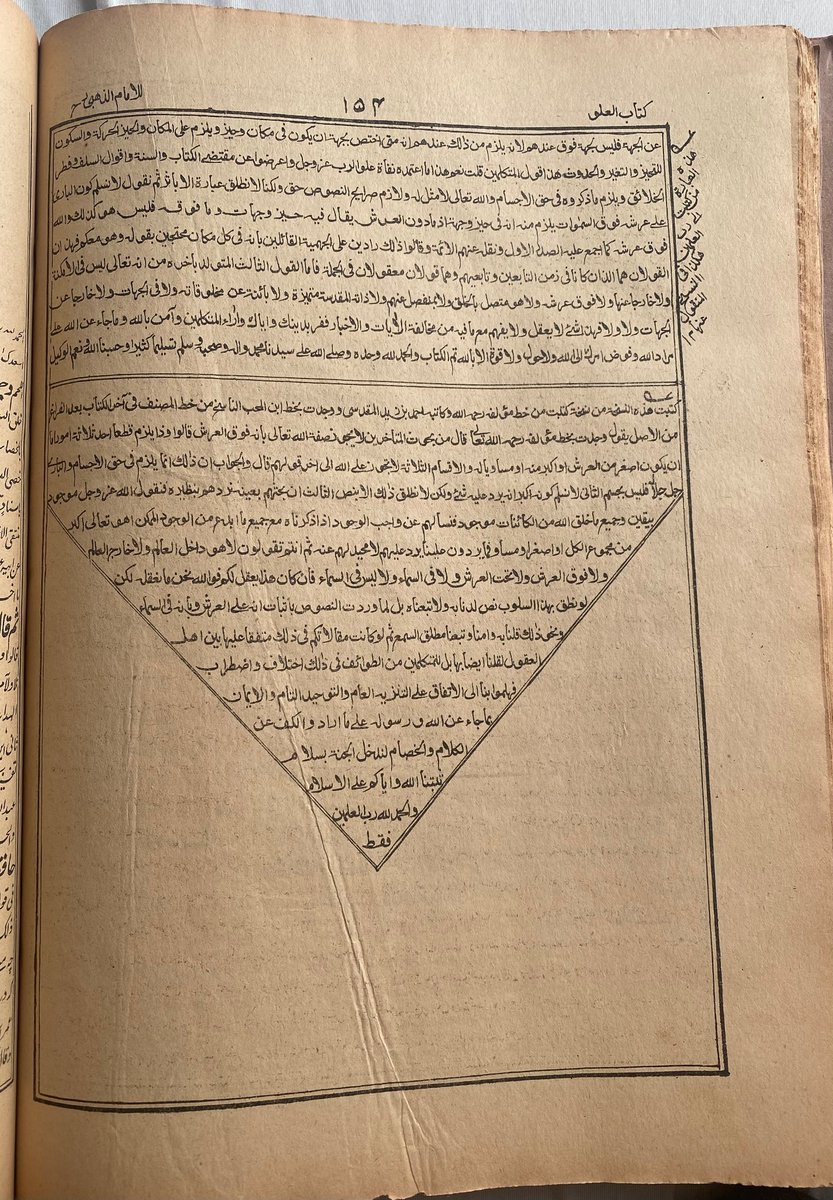 كتاب العلو
١٥٤
للامام الذهبي
عن الجهة فليس بجهة فوق عندهم لانه يلزم من ذلك عندهم انه متى اختص بجهة ان يكون فى مكان وحيز ويلزم على المكان والحيز الحركة والسكون
للتحيز والتغير والحدوث هذا قول المتكلمين قلت نعم هذا ما اعتمده نفاة علو الرب عز وجل واعرضوا عن مقتضى الكتاب والسنة واقوال السلف وفطر
الخلائق ويلزم ما ذكروه فى حق الاجسام والله تعالى لا مثل له ولازم صرايح النصوص حق ولكنا لا نطلق عبارة الا باثر ثم نقول لا نسلم كون البارى
على عرشه فوق السموات يلزم منه انه فى حيز وجهة اذ ما دون العرش يقال فيه حيز وجهات وما فوقه فليس هو كذلك والله
فوق عرشه كما اجمع عليه الصدر الاول ونقله عنهم الائمة وقالوا ذلك رادين على الجهمية القائلين بانه فى كل مكان محتجين بقوله وهو معكم فهذان
القولان هما اللذان كانا فى زمن التابعين وتابعيهم وهما قولان معقولان فى الجملة فاما القول الثالث المتولد بأخره من انه تعالى ليس فى الامكنة
ولا خارجا عنها ولا فوق عرشه ولا هو متصل بالخلق ولا بمنفصل عنهم ولا ذاته المقدسة متميزة ولا بائنة عن مخلوقاته ولا فى الجهات ولا خارجا عن
الجهات ولا ولا فهذا شئ لا يعقل ولا يفهم مع ما فيه من مخالفة الآيات والاخبار ففر بدينك واياك وآراء المتكلمين وآمن بالله وما جاء عن الله على
مراد الله وفوض امرك الى الله ولا حول ولا قوة الا بالله تم الكتاب والحمد لله وحده وصلى الله على سيدنا محمد واله وصحبه وسلم تسليما كثيرا وحسبنا الله ونعم الوكيل
كتبت هذه النسخة من نسخة كتبت من خط مؤلفه رحمه الله وكاتبه احمد بن زيد المقدسى وجدت بخط ابن المحب الناسخ من خط المصنف فى آخر الكتاب بعد الفراغ
من الاصل يقول وجدت بخط مؤلفه رحمه الله تعالى قال من بحوث المتأخرين لا يجوز صفة الله تعالى بانه فوق العرش قالوا وذا يلزم قطعا احد ثلاثة امور اما
ان يكون اصغر من العرش او اكبر منه او مساويا له والاقسام الثلاثة لا تجوز على الله الى اخر قولهم قال والجواب ان ذلك انما يلزم فى حق الاجسام والبارى
جل جلاله فليس بجسم الثانى لا نسلم كونه اكبر انه يرد عليه شئ ولكن لا نطلق ذلك الا بنص الثالث ان بحثهم بعينه نردهم بنظاره فنقول الله عز وجل موجود
بيقين وجميع ما خلق الله من الكائنات موجود فنسالهم عن واجب الوجود اذا ذكرناه مع جميع ما ابدع من الوجود الممكن اهو تعالى اكبر
من مجموع الكل او اصغر او مساو فما يردون علينا يرد عليهم لا محيد لهم عنه ثم انتم تقولون لا هو داخل العالم ولا خارج العالم
ولا فوق العرش ولا تحت العرش ولا فى السماء ولا ليس فى السماء فان كان هذا يعقل لكم فوالله نحن ما نعقله لكن
لو نطق بهذا السلوب نص لدنا به ولا تبعناه بل لما وردت النصوص باثبات انه على العرش وبانه فى السماء
ونحو ذلك قلنا به وامنا وتبعنا مطلق السمع ثم لو كانت مقالاتكم فى ذلك متفقا عليها بين اهل
العقول لقلنا ايضا بها بل للمتكلمين من الطوائف فى ذلك اختلاف واضطراب
فهلموا بنا الى الاتفاق على التنزيه العام والتوحيد التام والايمان
بما جاء عن الله ورسوله على ما اراد والكف عن
الكلام والخصام لندخل الجنة بسلام
ثبتنا الله واياكم على الاسلام
والحمد لله رب العلمين
فقط
هذه العبارة